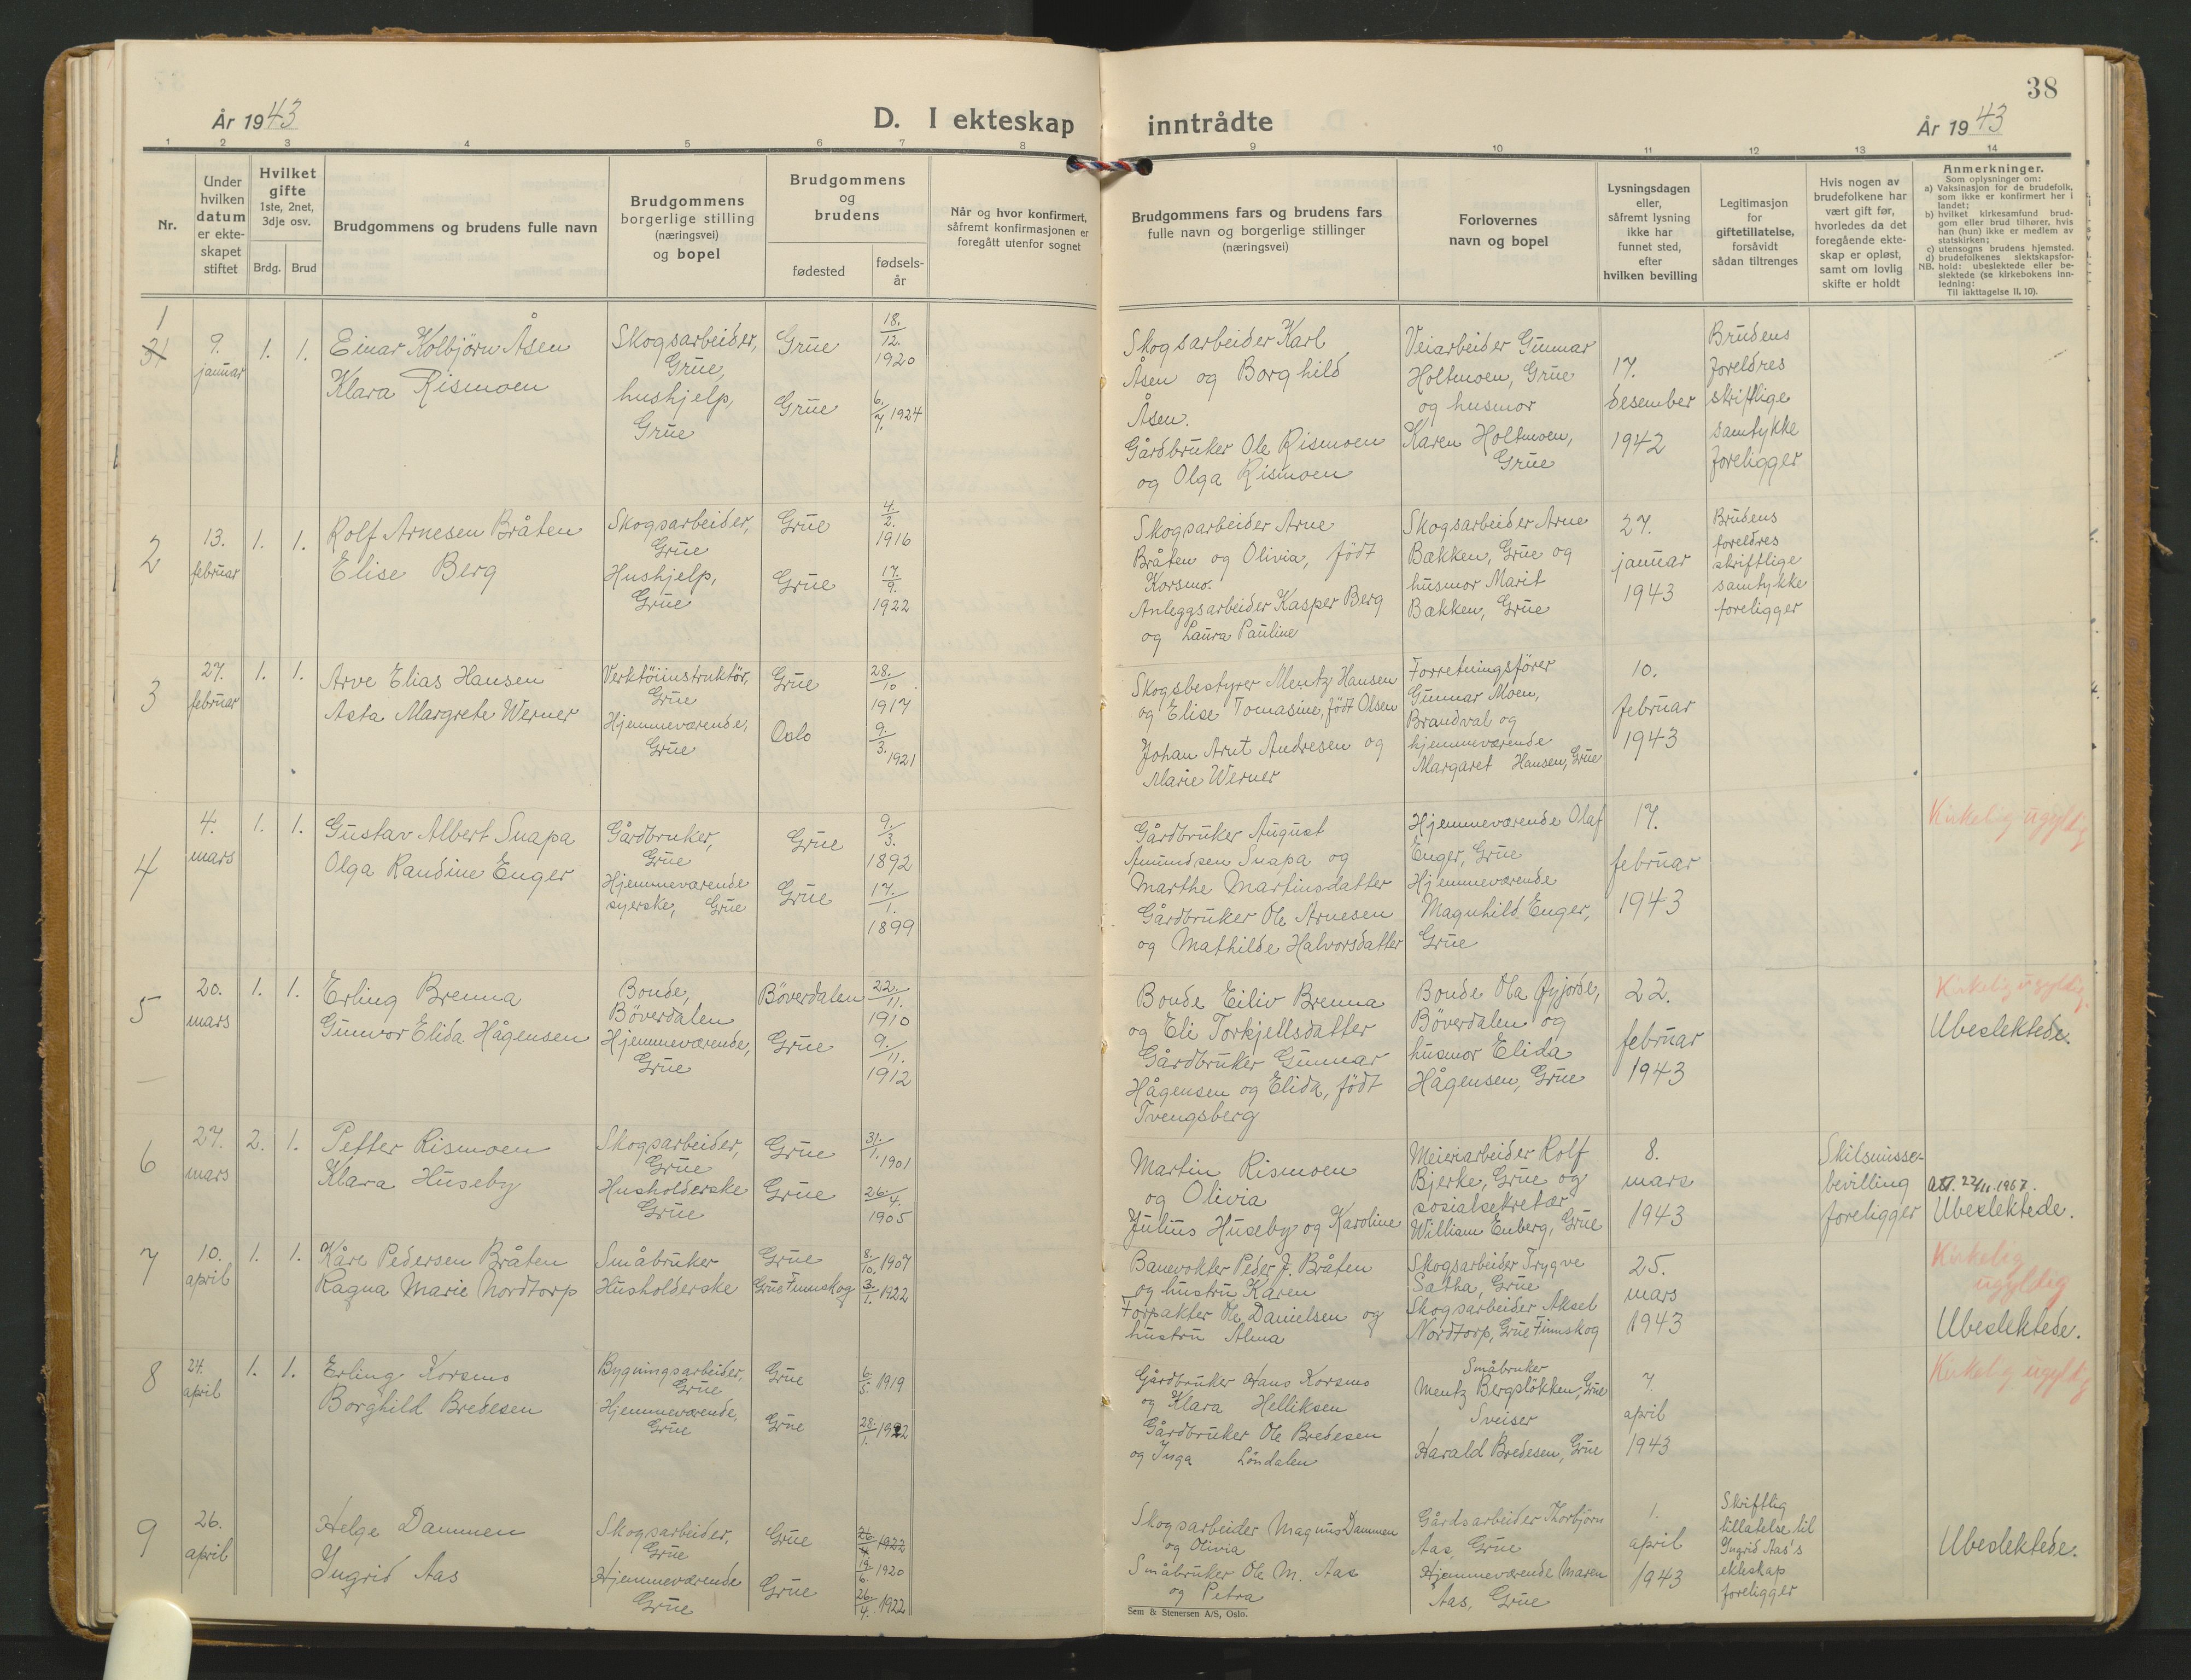 38
År 1943
D. I ekteskap inntrådte
År 1943
1 2 3 4 5 6 7 8 9 10 11 12 13 14
Nr.
Under
hvilken
datum
er ekte-
skapet
stiftet
Hvilket
gifte
1ste, 2net,
3dje osv.
Brdg. Brud
Brudgommens og brudens fulle navn
Brudgommens
borgerlige stilling
(næringsvei)
og bopel
Brudgommens
og
brudens
fødested
fødsels-
år
Når og hvor konfirmert,
såfremt konfirmasjonen er
foregått utenfor sognet
Brudgommens fars og brudens fars
fulle navn og borgerlige stillinger
(næringsvei)
Forlovernes
navn og bopel
Lysningsdagen
eller,
såfremt lysning
ikke har
funnet sted,
efter
hvilken bevilling
Legitimasjon
for
giftetillatelse,
forsåvidt
sådan tiltrenges
Hvis nogen av
brudefolkene har
vært gift før,
hvorledes da det
foregående ekte-
skap er opløst,
samt om lovlig
skifte er holdt
Anmerkninger.
Som oplysninger om:
a) Vaksinasjon for de brudefolk,
som ikke er konfirmert her i
landet;
b) hvilket kirkesamfund brud-
gom eller brud tilhører, hvis
han (hun) ikke er medlem av
statskirken;
c) utensogns brudens hjemsted.
d) brudefolkenes slektskapsfor-
NB. hold: ubeslektede eller be-
slektede (se kirkebokens inn-
ledning:
Til iakttagelse II. 10).
1
31
9.
januar
1. 1.
Einar Kolbjörn Åsen
Klara Rismoen
Skogsarbeider,
Grue,
hushjelp,
Grue
Grue
Grue
18.
12.
1920
6.
7. 1924
Skogsarbeider Karl
Åsen og Borghild
Åsen.
Gårdbruker Ole Rismoen
og Olga Rismoen
Veiarbeider Gunnar
Holtmoen, Grue
og husmor
Karen Holtmoen,
Grue
17.
desember
1942
Brudens
foreldres
skriftlige
samtykke
foreligger
2
13.
februar
1. 1.
Rolf Arnesen Bråten
Elise Berg
Skogsarbeider,
Grue
Hushjelp,
Grue
Grue
Grue
4.
2.
1916
17.
9.
1922
Skogsarbeider Arne
Bråten og Olivia, födt
Korsmo.
Anleggsarbeider Kasper Berg
og Laura Pauline
Skogsarbeider Arne
Bakken, Grue og
husmor Marit
Bakken, Grue
27.
januar
1943
Brudens
foreldres
skriftlige
samtykke
foreligger
3
27.
februar
1. 1.
Arve Elias Hansen
Asta Margrete Werner
Verktöiinstruktör,
Grue
Hjemmeværende,
Grue
Grue
Oslo
28.
10.
1917
9.
3. 1921
Skogsbestyrer Mentz Hansen
og Elise Tomasine, födt Olsen
Johan Arnt Andresen og
Marie Werner
Forretningsförer
Gunnar Moen,
Brandval og
hjemmeværende
Margaret Hansen, Grue
10.
februar
1943
4
4.
mars
1. 1.
Gustav Albert Snapa
Olga Randine Enger
Gårdbruker,
Grue
Hjemmeværende
syerske, Grue
Grue
Grue
9.
3.
1892
17.
1.
1899
Gårdbruker August
Amundsen Snapa og
Marthe Martinsdatter
Gårdbruker Ole Arnesen
og Mathilde Halvorsdatter
Hjemmeværende Olaf
Enger, Grue
Hjemmeværende
Magnhild Enger,
Grue
17.
februar
1943
Kirkelig ugyldig
5
20.
mars
1. 1.
Erling Brenna
Gunvor Elida Hågensen
Bonde,
Böverdalen
Hjemmeværende,
Grue
Böverdalen
Grue
22.
11.
1910
9.
11.
1912
Bonde Eiliv Brenna
og Eli Torkjellsdatter
Gårdbruker Gunnar
Hågensen og Elida, födt
Tvengsberg
Bonde Ola
Böverdalen og
husmor Elida
Hågensen, Grue
22.
februar
1943
Kirkelig ugyldig
Ubeslektede.
6
27.
mars
2. 1.
Petter Rismoen
Klara Huseby
Skogsarbeider,
Grue
Husholderske
Grue
Grue
Grue
31.
1. 1901
26.
4.
1905
Martin Rismoen
og Olivia
Julius Huseby og Karoline
Meieriarbeider Rolf
Bjerke, Grue og
sosialsekretær
William Enberg, Grue
8.
mars
1943
Skilsmisse-
bevilling
foreligger
att. 22/11.1967.
Ubeslektede.
7
10.
april
1. 1.
Kåre Pedersen Bråten
Ragna Marie Nordtorp
Småbruker
Husholderske
Grue
Grue Finnskog
8.
10. 1907
3.
1. 1922
Banevokter Peder J. Bråten
og hustru Karen
Forpakter Ole Danielsen og
hustru Alma
Skogsarbeider Trygve
Satha, Grue
Skogsarbeider Aksel
Nordtorp, Grue Finnskog
25.
mars
1943
Kirkelig
ugyldig
Ubeslektede.
8
24.
april
1. 1.
Erling Korsmo
Borghild Bredesen
Bygningsarbeider,
Grue
Hjemmeværende,
Grue
Grue
Grue
6.
5. 1919
28.
1. 1922
Gårdbruker Hans Korsmo
og Klara Helliksen
Gårdbruker Ole Bredesen
og Inga Löndalen
Småbruker
Mentz Bergslökken, Grue
Sveiser
Harald Bredesen, Grue
7.
april
1943
Kirkelig ugyldig
9
26.
april
Helge Dammen
Ingrid Aas
Skogsarbeider,
Grue
Hjemmeværende
Grue
Grue
Grue
26.
4. 1922
19.
6. 1920
26.
4. 1922
Skogsarbeider Magnus Dammen
og Olivia
Småbruker Ole M. Aas
og Petra
Gårdsarbeider Thorbjörn
Aas, Grue
Hjemmeværende Maren
Aas, Grue
1.
april
1943
Skriftlig
tillatelse til
Ingrid Aas's
ekteskap
foreligger
Ubeslektede.
Sem & Stenersen A/S, Oslo.